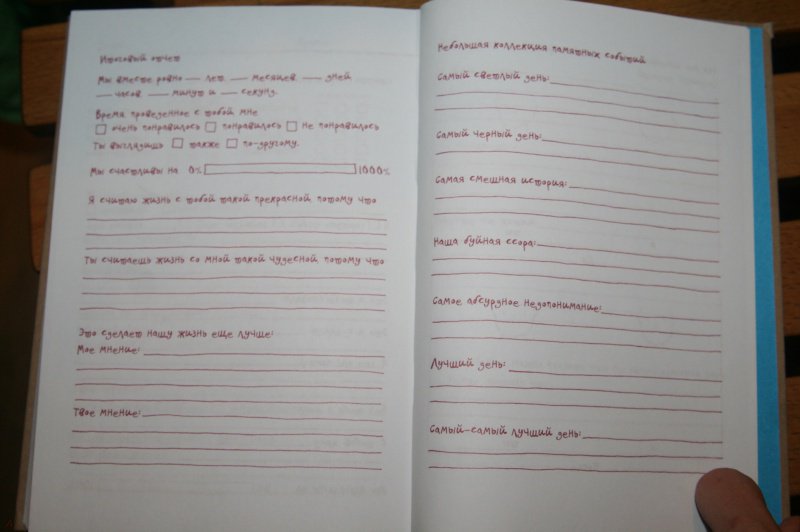 Итоговый отчет
Мы вместе ровно — лет, — месяцев, — дней
— часов, — минут и — секунд.
Время, проведенное с тобой мне
очень понравилось понравилось не понравилось
Ты выглядишь также по-другому.
Мы счастливы на 0% 1000%
Я считаю жизнь с тобой такой прекрасной, потому что
Ты считаешь жизнь со мной такой чудесной, потому что
Это сделает нашу жизнь еще лучше:
Мое мнение:
Твое мнение:
Небольшая коллекция памятных событий
Самый светлый день:
Самый черный день:
Самая смешная история:
Наша буйная ссора:
Самое абсурдное недопонимание:
Лучший день:
Самый-самый лучший день: